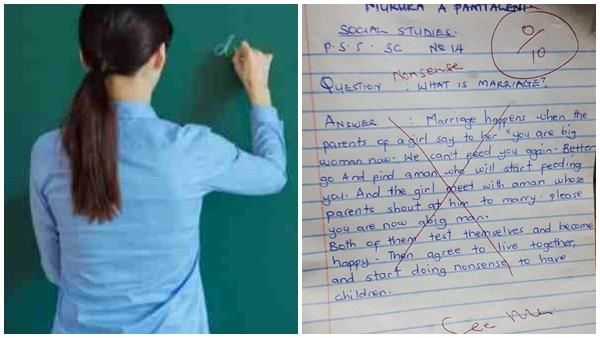 d
MUKUKA A PAMTALENI
SOCIAL STUDIES.
P.S.S. 3C No 14
0/10
Nonsense
QUESTION : WHAT IS MARRIAGE?
ANSWER : Marriage happens when the
parents of a girl say to her "you are big
woman now. We can't feed you again. Better
go And find aman who will start feeding
you. And the girl meet with aman whose
parents shout at him to marry. Please
you are now abig man.
Both of them test themselves and become
happy. Then agree to live together,
and start doing nonsense to have
children.
See Me.